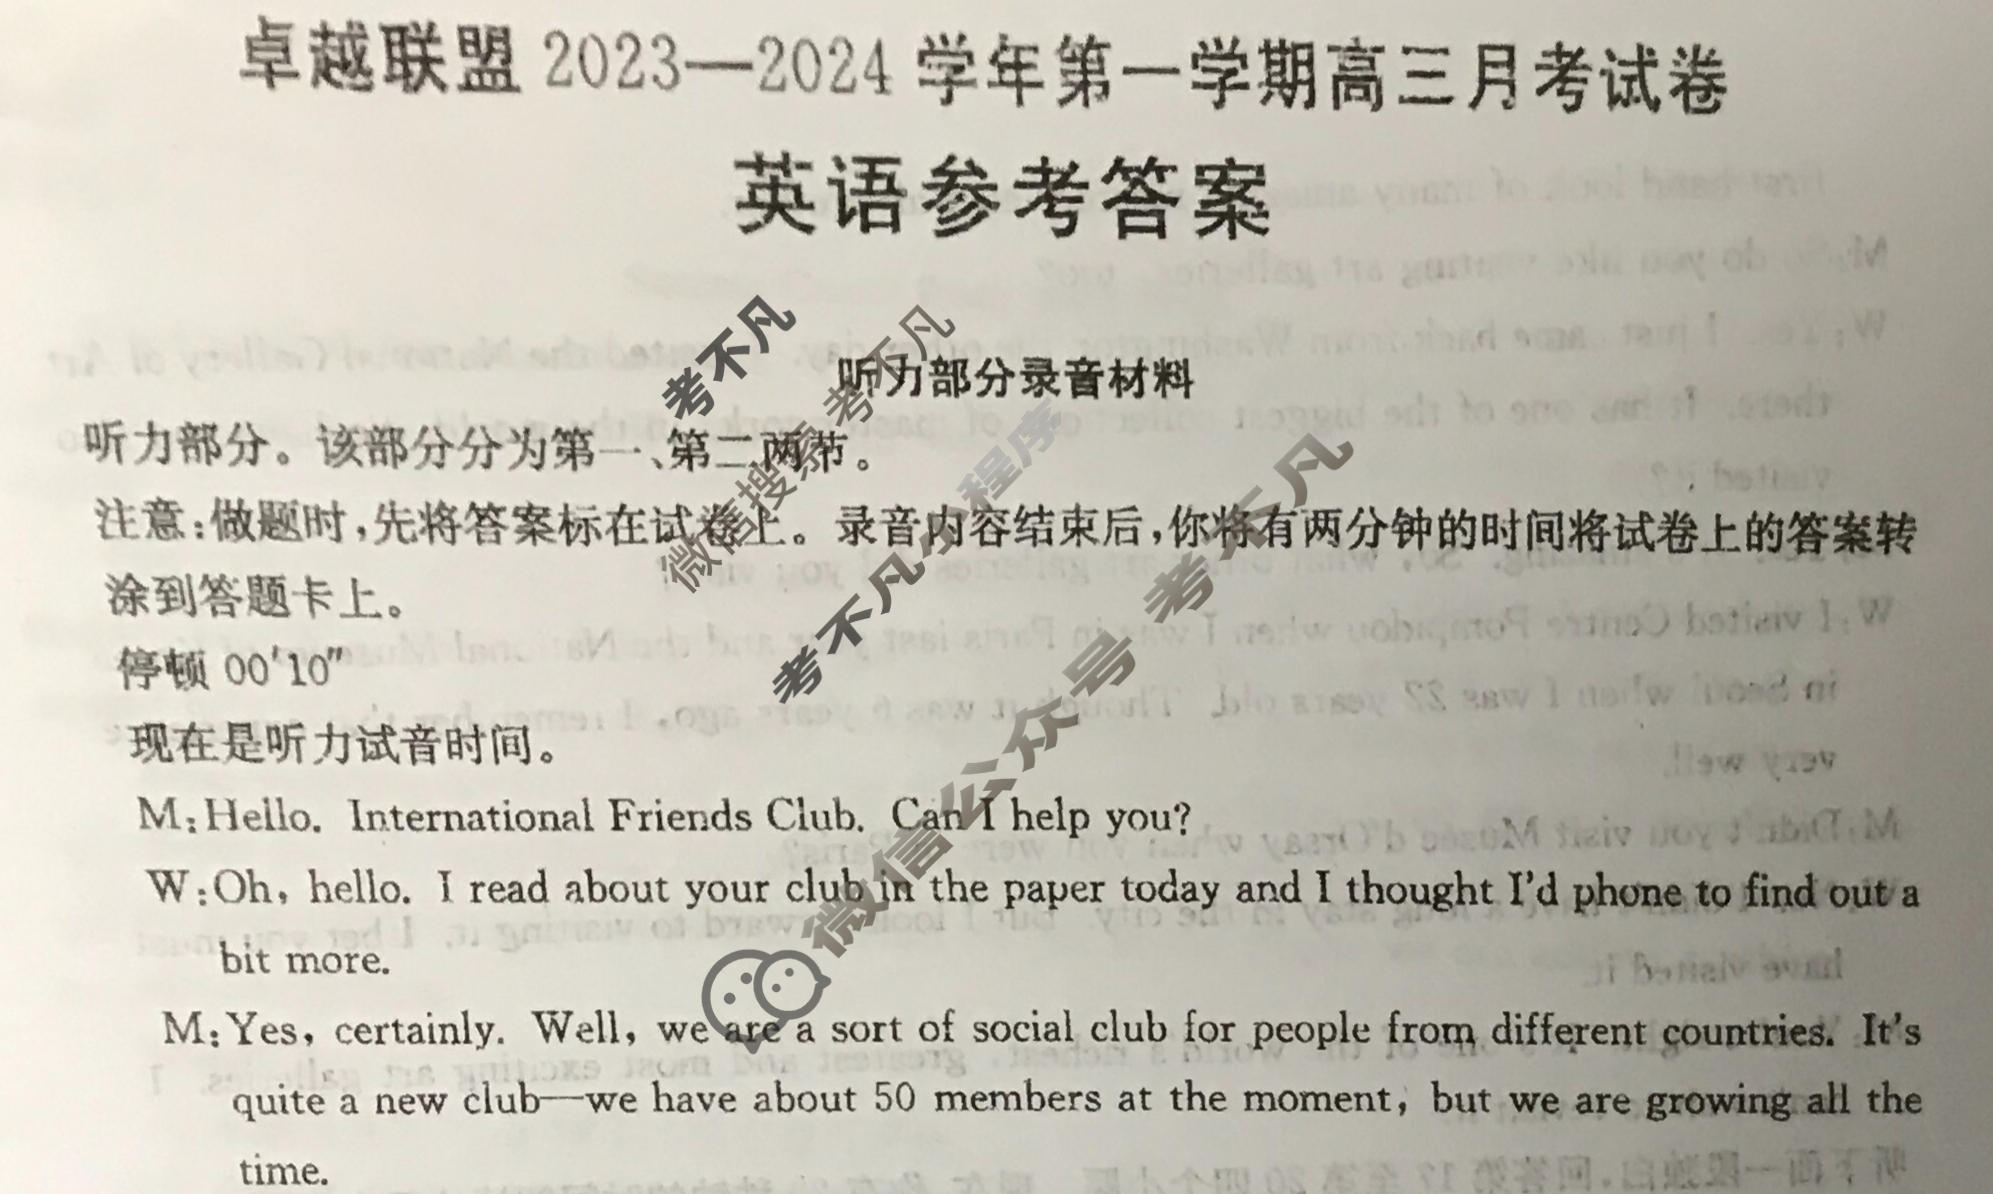 卓越联盟 2023—2024 学年第一学期高三月考试卷
英语参考答案
听力部分录音材料
听力部分。该部分分为第一、第二两节。
注意:做题时,先将答案标在试卷上。录音内容结束后,你将有两分钟的时间将试卷上的答案转
涂到答题卡上。
停顿 00′10″
现在是听力试音时间。
M:Hello. International Friends Club. Can I help you?
W:Oh, hello. I read about your club in the paper today and I thought I'd phone to find out a
bit more.
M:Yes, certainly. Well, we are a sort of social club for people from different countries. It's
quite a new club—we have about 50 members at the moment, but we are growing all the
time.
考不凡
微信搜索 考不凡
考不凡小程序
微信公众号 考不凡